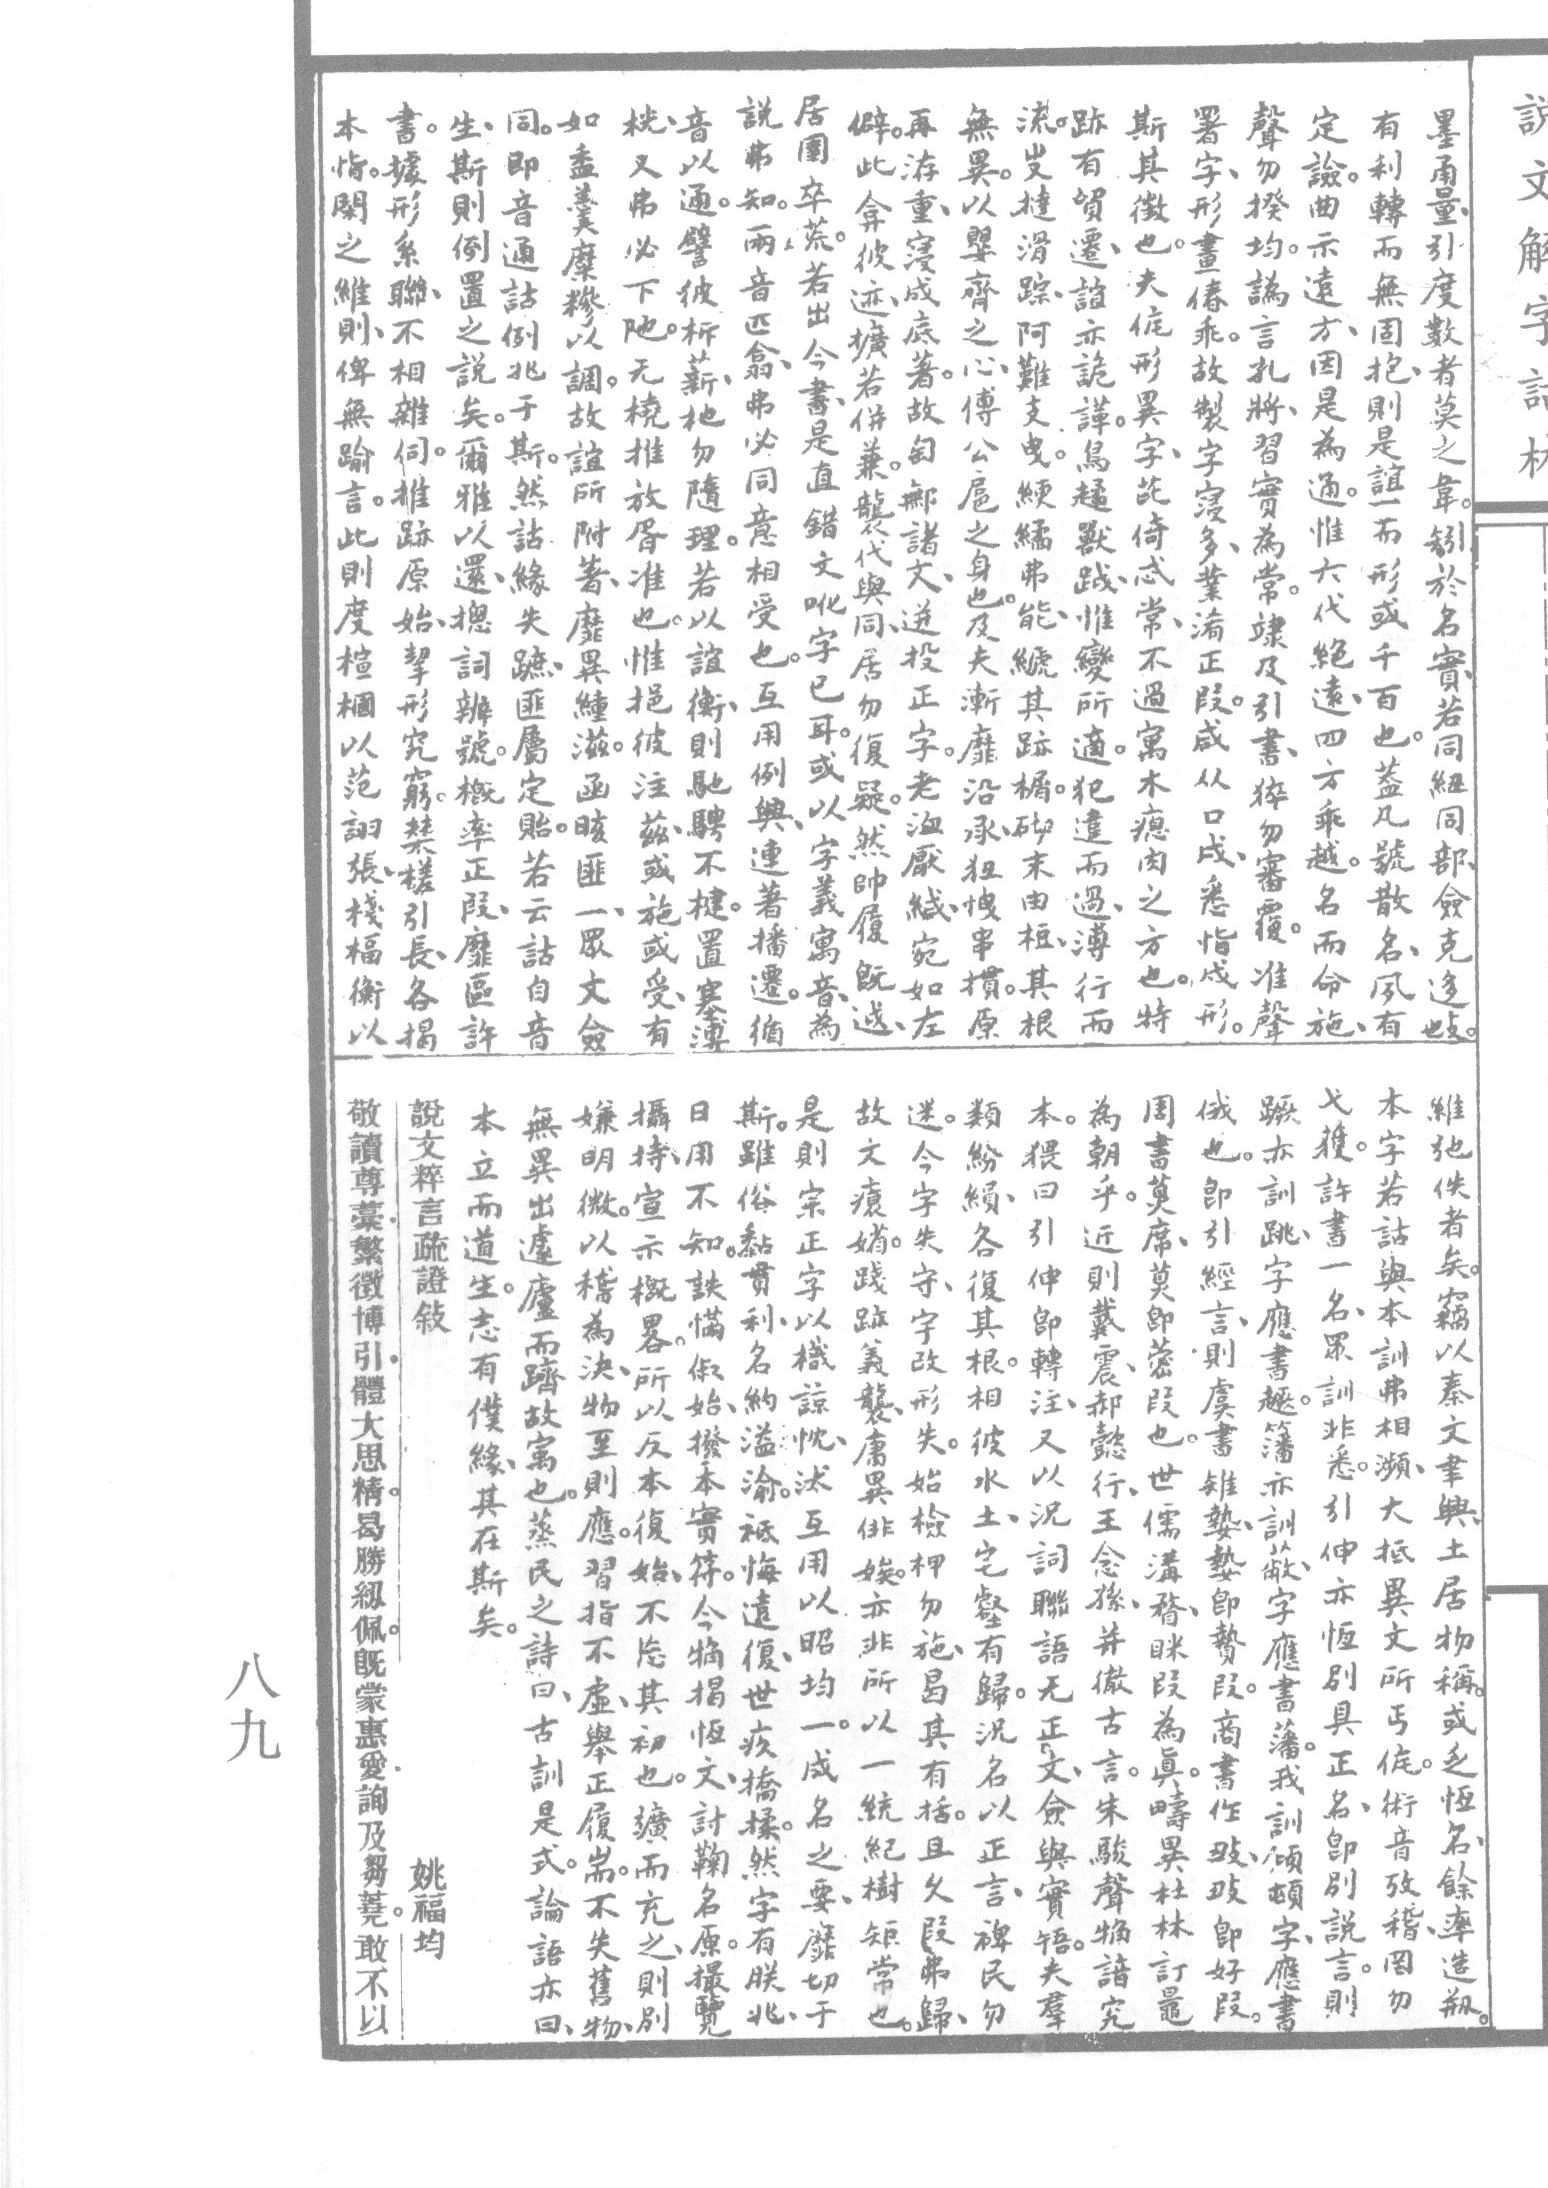 說文解字詁林
墨甬量引度數者莫之韋。於名實若同紐同部僉克迻也。
有利轉而無固抱則是誼一而形或千百也。蓋凡號散名夙有
定諗。曲示遠方因是為通。惟六代絶遠四方乖越。名而命施
聲勿揆均。譌言孔將習實為常。逮及引書猝勿審覆。准聲
署字形畫偆乖。故製字寖多業淆正叚。咸从口成悉恉成形。
斯其徵也。夫侂形異字茈倚忒常不過寓木瘜肉之方也。特
跡有貿遷誼亦詭諽。鳥趫獸跇惟變所適。犯違而過溥行而
流。㞢撻滑踪阿難支曳。綆繘弗能繘其跡楬砌末由柢其根
無異。以嬰齊之心傅公扈之身也。及夫漸靡沿承狃愧串摜。原
再洊重寖成底著。故匋鄦諸文迸投正字。老洫厭緘宛如左
僻。此弇彼迹擴若併兼。襲代與同居勿復疑。然帥履既逑
居圉卒荒。若出今書是直錯文吪字已耳。或以字義寓音為
說弗知。兩音匹翕弗必同意相受也。互用例興連著播遷。循
音以通。譬彼柝薪杝勿隨理。若以誼衡則馳騁不楗。置塞溥
桄又弗必下阤。无橈推放胥准也。惟挹彼注茲或施或受有
如盉羹糜糝以調。故誼所附著靡異緟滋。函晐匪一眾文僉
同。即音通詁例兆于斯。然詁緣失蹠匪屬定貽。若云詁自音
生斯則倒置之說矣。爾雅以還摠詞辨號概率正叚靡區許
書。據形系聯不相雜伺。推跡原始挈形究窮。枼槎引長各揭
本恉。閑之維則俾無踰言。此則度楦楓以范詡張棧楅衡以
維弛佚者矣。竊以秦文聿興土居物稱。或乏恆名餘率造剏。
本字若詁與本訓弗相瀕大抵異文所丐侂。術音攷稽罔勿
弋獲。許書一名眾訓非悉。引伸亦恆別具正名卽別說言。則
蹶亦訓跳字應書趣。籓亦訓蔽字應書藩。我訓頃頓字應書
俄也。卽引經言則虞書雉摯摯卽贄叚。商書作㛅㛅卽好叚。
周書莫席莫卽蔤叚也。世儒溝瞀眯叚為眞。疇異杜林訂鼂
為朝乎。近則戴震郝懿行王念孫并徹古言。朱駿聲觕諳究
本。猥曰引伸卽轉注又以況詞聯語无正文僉與實牾。夫羣
類紛縜各復其根。相彼水土宅壑有歸。況名以正言裨民勿
迷。今字失守字改形失。始檢柙勿施曷其有括。且久叚弗歸
故文瘝媘。踐跡義襲庸異俳娭。亦非所以一統紀樹矩常也。
是則宷正字以樴諒忱汱互用以昭均一。咸名之要靡切于
斯。雖俗黏貫利名約溢渝。祗悔遠復世疚撟揉。然字有朕兆
日用不知。詄慲俶始撥本實符。今觕揭恆文討鞠名原。撮覽
攝持宣示概畧。所以反本復始不忘其初也。擴而充之則別
嫌明微。以稽為決物至則應。習指不虛舉正履耑。不失舊物
無異出遽廬而躋故寓也。蒸民之詩曰古訓是式。論語亦曰
本立而道生。志有僕緣其在斯矣。
說文粹言疏證敍　姚福均
敬讀尊藁繁徵博引體大思精。曷勝紉佩。旣蒙惠愛詢及芻蕘。敢不以
八九